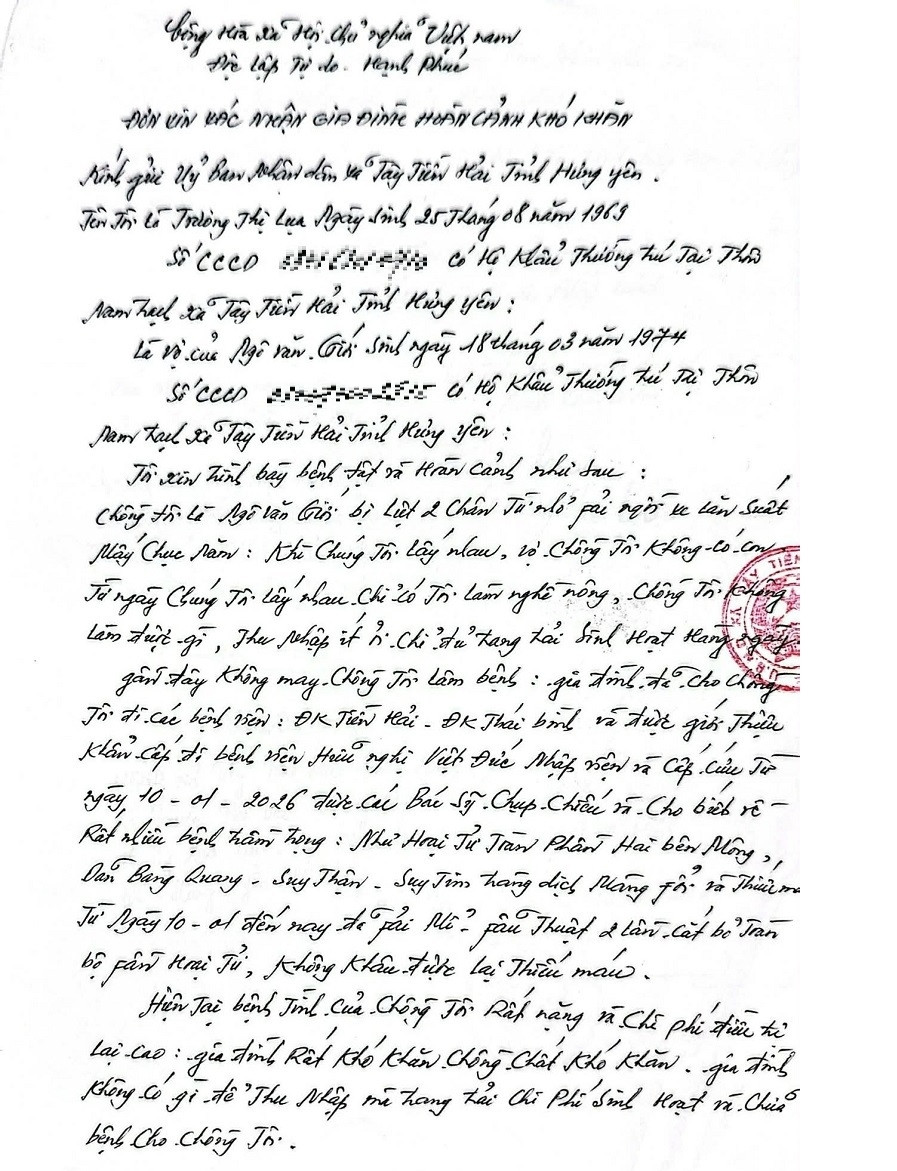 Cộng Hòa Xã Hội Chủ nghĩa Việt nam
Độc lập Tự do. Hạnh Phúc
ĐƠN XIN XÁC NHẬN GIA ĐÌNH HOÀN CẢNH KHÓ KHĂN
Kính gửi Uỷ Ban Nhân dân xã Tây Tiền Hải Tỉnh Hưng yên.
Tên Tôi là Trương Thị Lụa Ngày sinh 25 Tháng 08 năm 1969
Số CCCD có Hộ Khẩu Thường trú Tại Thôn
Nam trạch xã Tây Tiền Hải Tỉnh Hưng yên:
Là vợ của Ngô văn Giới sinh ngày 18 tháng 03 năm 1974
Số CCCD có Hộ Khẩu Thường trú Tại Thôn
Nam trạch xã Tây Tiền Hải Tỉnh Hưng yên:
Tôi xin trình bày bệnh tật và Hoàn cảnh như sau:
Chồng tôi là Ngô văn Giới bị Liệt 2 Chân Từ nhỏ fải ngồi xe lăn Suất
Mấy Chục Năm: Khi Chúng Tôi lấy nhau, vợ Chồng Tôi Không có con
Từ ngày Chúng Tôi lấy nhau Chỉ có Tôi làm nghề nông, Chồng Tôi Không
làm được gì, Thu Nhập ít ỏi Chỉ đủ trang trải Sinh Hoạt Hàng ngày
gần đây Không may Chồng Tôi lâm bệnh: gia đình đã Cho Chồng
Tôi đi các bệnh viện: ĐK Tiền Hải - ĐK Thái bình và được giới Thiệu
Khẩn cấp đi bệnh viện Hữu nghị Việt Đức Nhập viện và Cấp cứu Từ
ngày 10 - 01 - 2026 được các Bác Sỹ Chụp Chiếu và Cho biết về
Rất nhiều bệnh trầm trọng: Như Hoại Tử Tràn Phần Hai bên Mông,
Bàng Quang - Suy Thận - Suy Tim tràng dịch Màng fổi và Thiếu má
Từ Ngày 10 - 01 đến nay đã fải Mổ - fẫu Thuật 2 lần cắt bỏ Tràn
bộ fần Hoại Tử, Không Khâu được lại Thiếu máu.
Hiện Tại bệnh Tình Của Chồng Tôi Rất nặng và Chi phí điều trị
Lại cao: gia đình Rất Khó Khăn Chồng Chất Khó Khăn. gia đình
Không có gì để Thu Nhập mà trang trải Chi Phí Sinh Hoạt và Chữa
bệnh Cho Chồng Tôi.